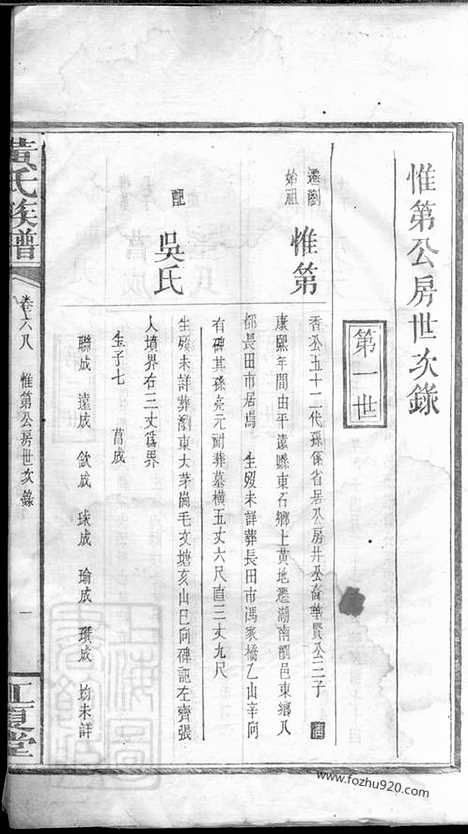 惟第公房世次錄
第一世
遷瀏
始祖
惟第
香公五十二代孫係省居公房井公裔華賢公三子 清
康熙年間由平遠縣東石鄉上黃地遷湖南瀏邑東鄉八
都長田市居焉 生歿未詳葬長田市馮家橋乙山辛向
有碑其孫堯元耐葬墓橫五丈六尺直三丈九尺
配
吳氏
生歿未詳葬瀏東大茅崗毛坟塘亥山巳向碑誌左齊張
人境界右三丈爲界
生子七 菖成
聯成 遠成 欽成 球成 瑜成 瓚成 均未詳
黃氏族譜
卷六八 惟第公房世次錄
一
江夏堂
www.fozhu920.com